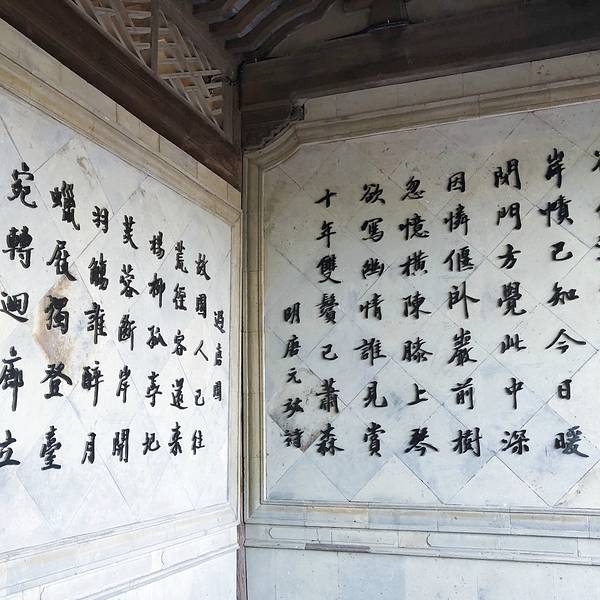 岸幘已知今日暖
閉門方覺此中深
因憐偃臥巖前樹
忽憶橫陳膝上琴
欲寫幽情誰見賞
十年雙鬢已蕭森
明唐元竑詩
過園
故園人已往
荒徑客還來
楊柳孤亭圮
芙蓉斷岸開
羽觴誰醉月
蠟屐獨登臺
宛轉迴廊立